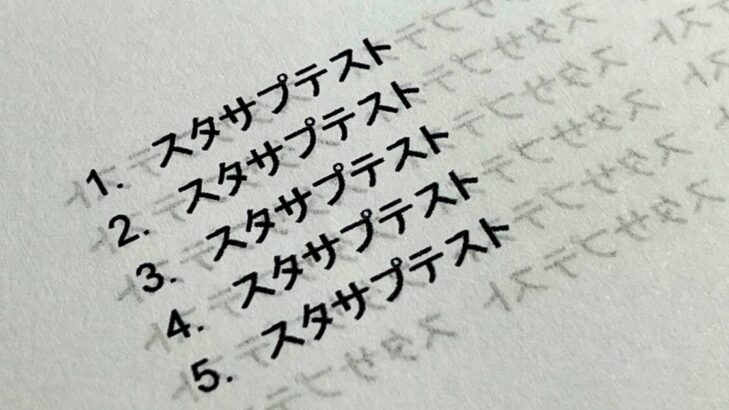 1. スタサプテスト
2. スタサプテスト
3. スタサプテスト
4. スタサプテスト
5. スタサプテスト